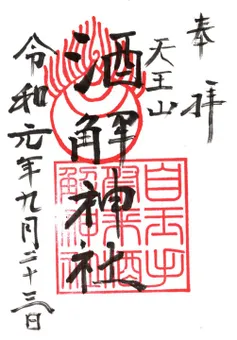 奉拝
天王山
酒解神社
令和元年九月二十三日